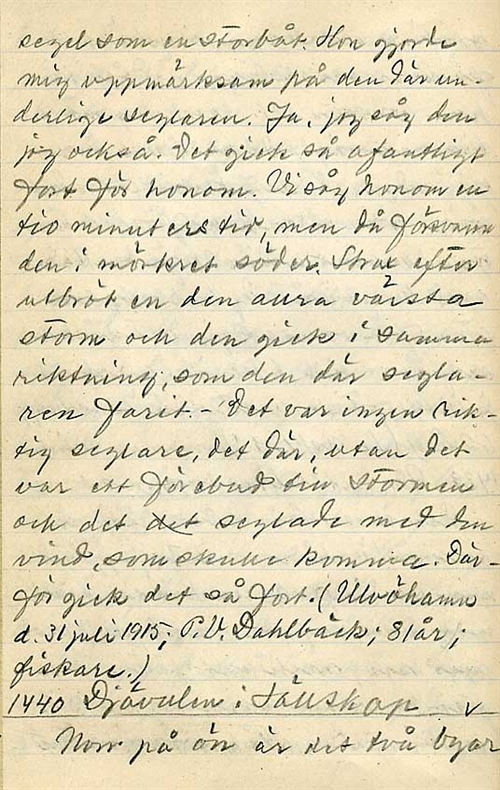 segel som en storbåt. Hon gjorde
mig uppmärksam på den där un-
derlige seglaren. Ja, jag såg den
jag också. Det gick så ofantligt
fort för honom. Vi såg honom en
tio minuters tid, men då försvann
den i mörkret söder. Strax efter
utbröt en den aura värsta
storm och den gick i samma
riktning, som den där segla-
ren farit. – Det var ingen rik-
tig seglare, det där, utan det
var ett förebud till stormen
och det det seglade med den
vind, som skulle komma. Där-
för gick det så fort. (Ulvöhamn
d. 31 juli 1915; P.V. Dahlbäck; 81 år;
fiskare.)
1440 Djävulen i sällskap v
Norr på ön är det två byar